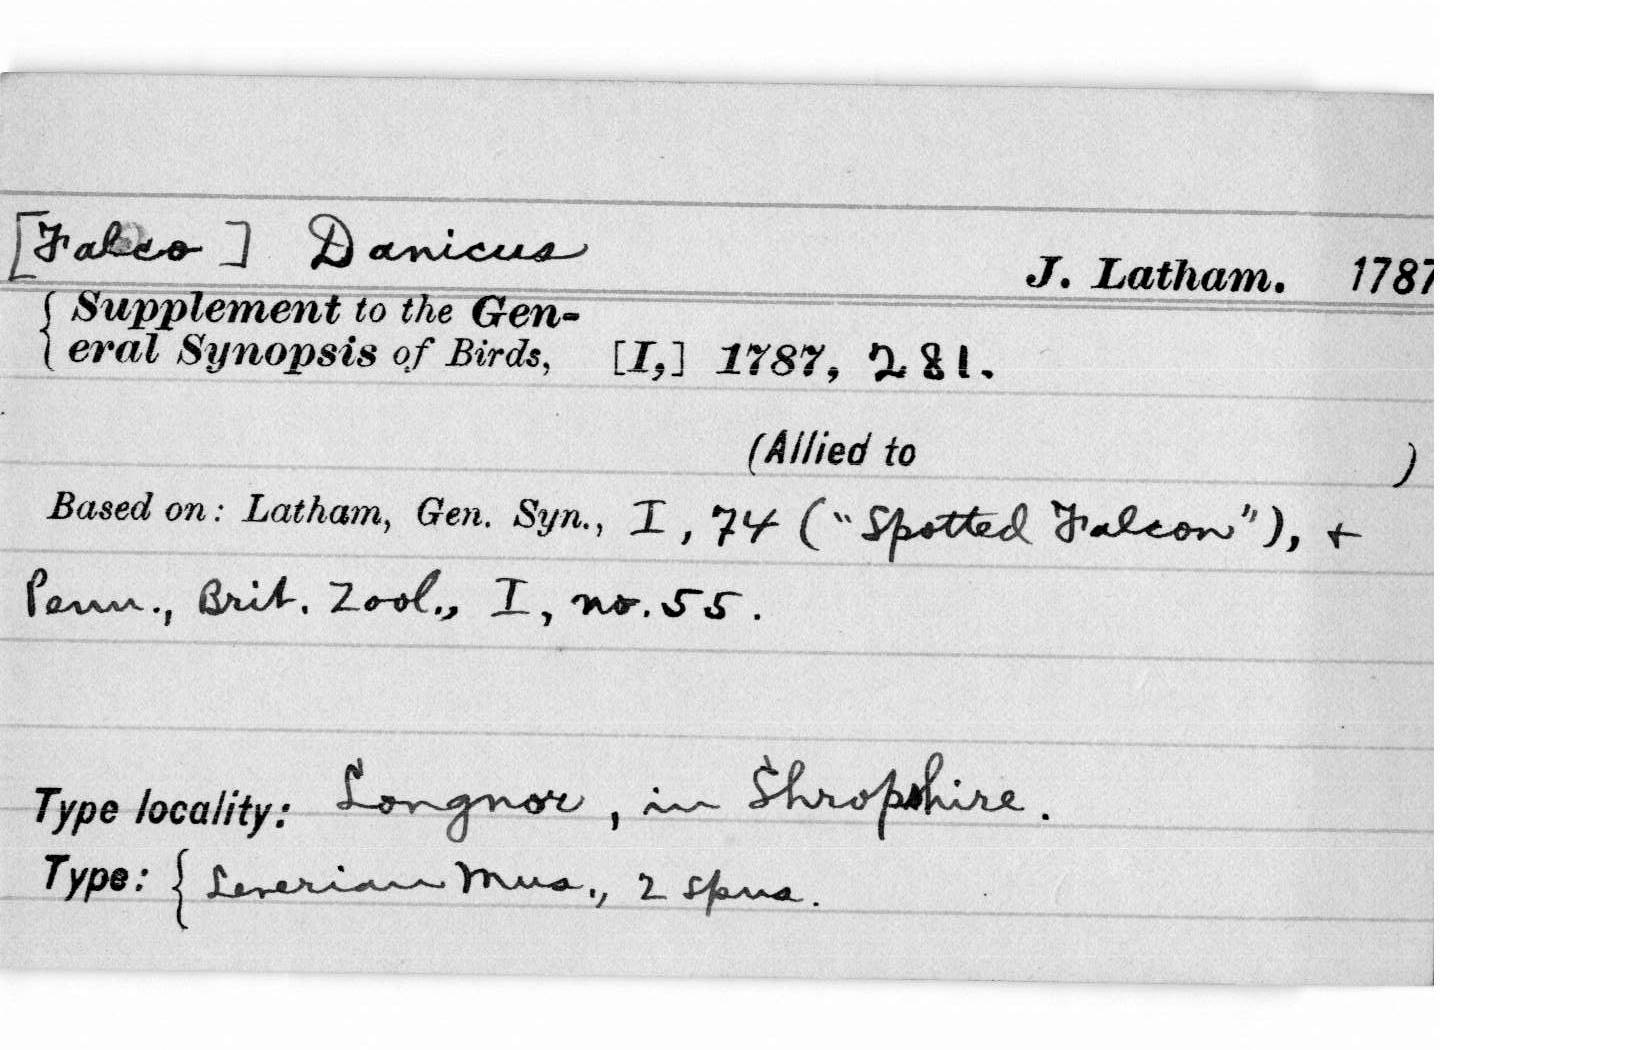 [Falco] Danicus
J. Latham. 1787
Supplement to the Gen-
eral Synopsis of Birds, [I,] 1787, 281.
(Allied to )
Based on: Latham, Gen. Syn., I, 74 ("Spotted Falcon"), +
Penn., Brit. Zool., I, no. 55.
Type locality: Longnor, in Shropshire.
Type: { Leverian Mus., 2 spns.